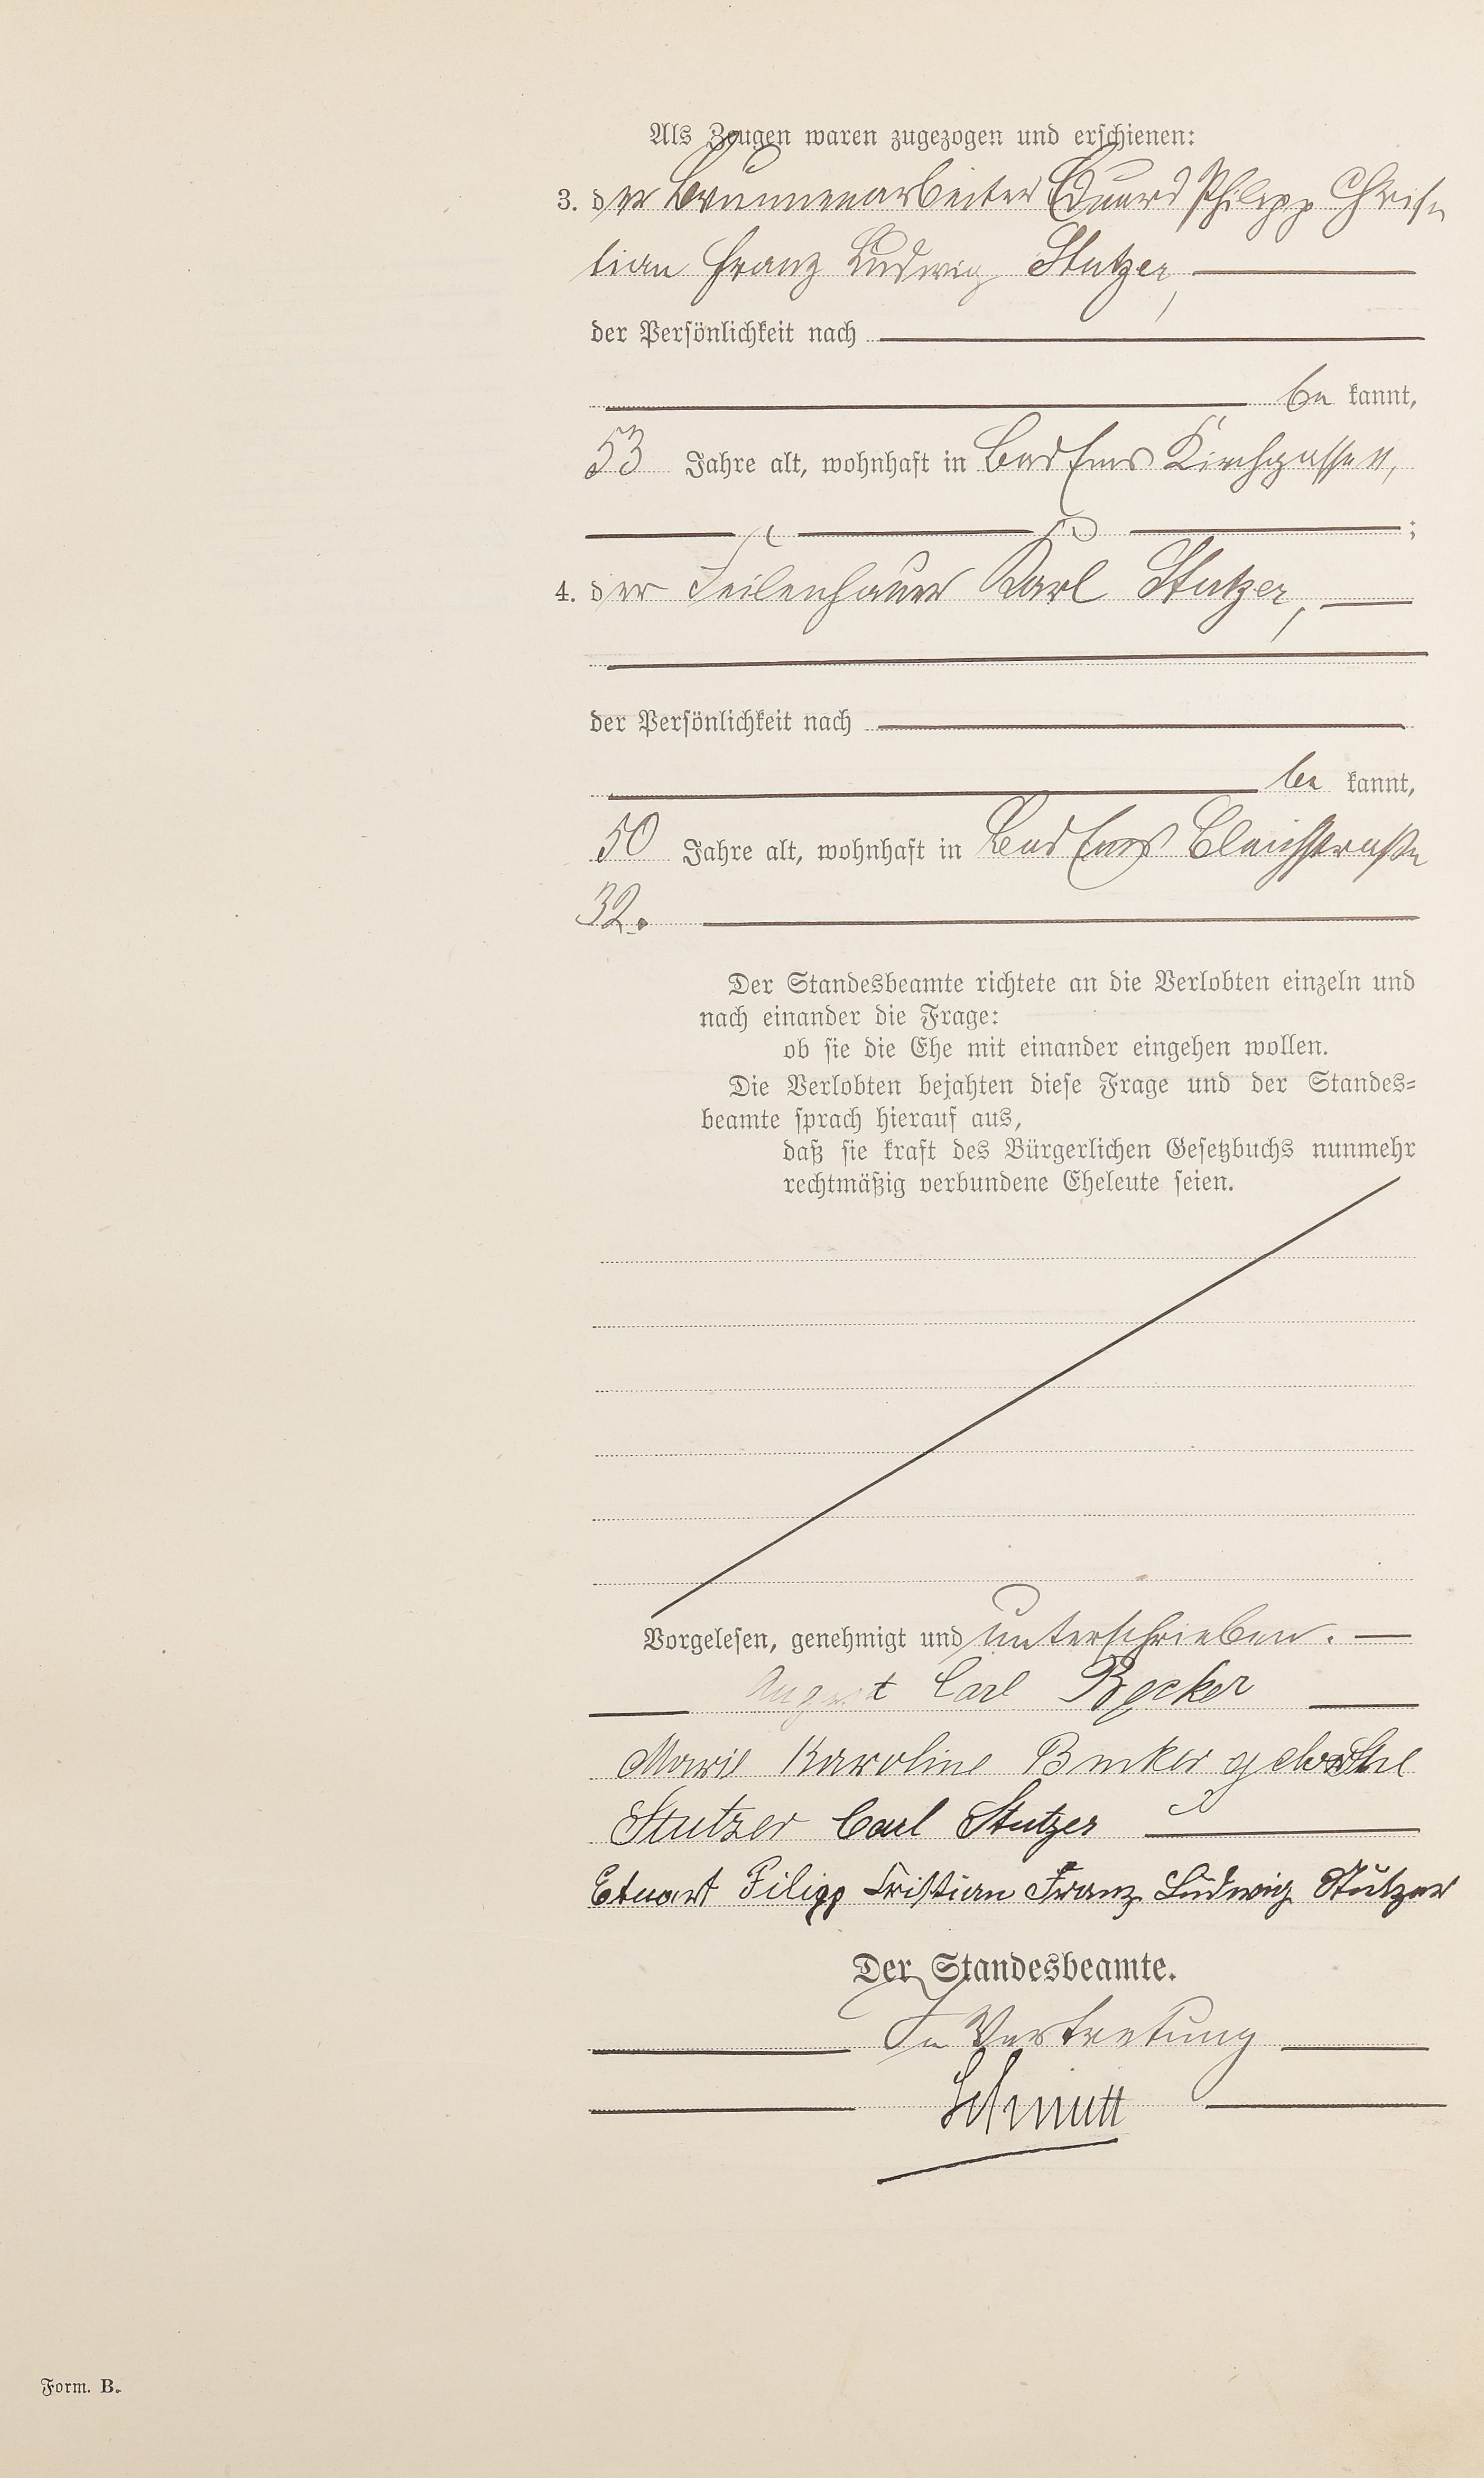 Als Zeugen waren zugezogen und erschienen:
3. der Brunnenarbeiter Eduard Philipp Chris-
tian Franz Ludwig Stutzer,
der Persönlichkeit nach
be kannt,
53 Jahre alt, wohnhaft in Bad Ems Kirchgasse
;
4. der Feilenhauer Karl Stutzer,
der Persönlichkeit nach
be kannt,
50 Jahre alt, wohnhaft in Bad Ems Bleichstraße
32.
Der Standesbeamte richtete an die Verlobten einzeln und
nach einander die Frage:
ob sie die Ehe mit einander eingehen wollen.
Die Verlobten bejahten diese Frage und der Standes-
beamte sprach hierauf aus,
daß sie kraft des Bürgerlichen Gesetzbuchs nunmehr
rechtmäßig verbundene Eheleute seien.
Vorgelesen, genehmigt und unterschrieben.
August Carl Becker
Marie Karoline
Stutzer Carl Stutzer
Eduart Filipp Cristian Franz Ludwig Stutzer
Der Standesbeamte.
In Vertretung
Schmitt
Form. B.